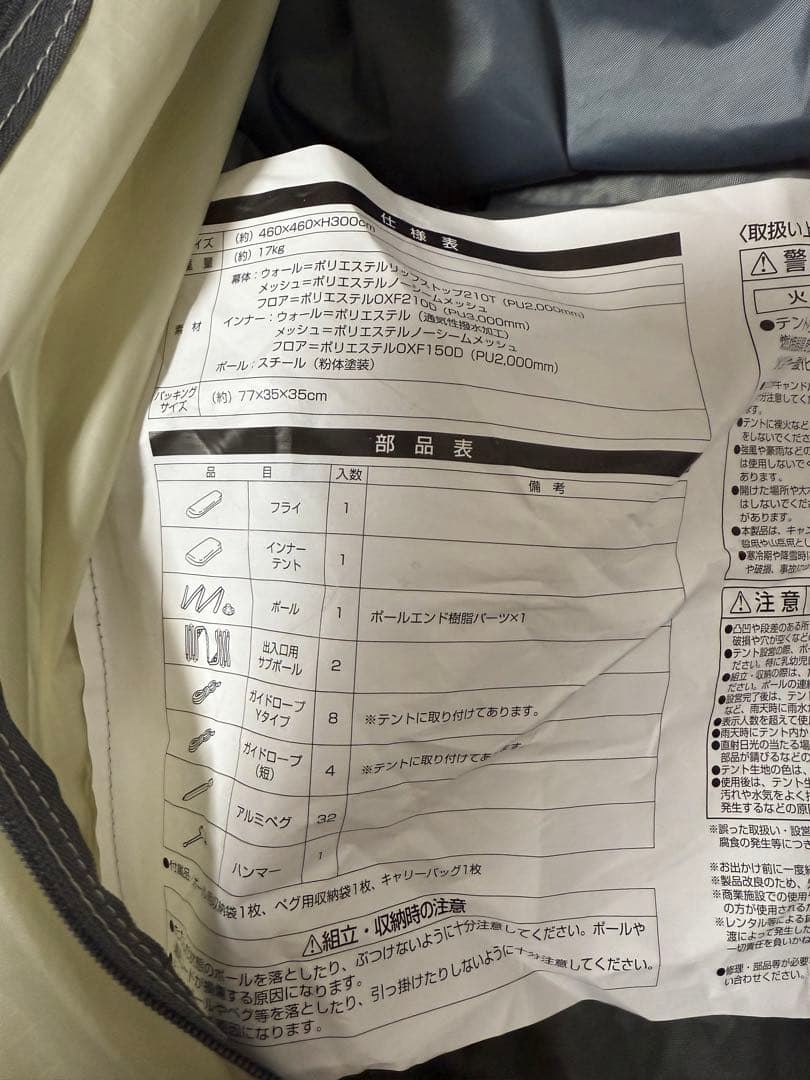 仕様表
イズ (約) 460×460×H300cm
重量 (約) 17kg
素材 幕体：ウォール＝ポリエステルリップストップ210T (PU2,000mm)
メッシュ＝ポリエステルノーシームメッシュ
フロア＝ポリエステルOXF210D (PU3,000mm)
インナー：ウォール＝ポリエステル (通気性撥水加工)
メッシュ＝ポリエステルノーシームメッシュ
フロア＝ポリエステルOXF150D (PU2,000mm)
ポール：スチール (粉体塗装)
パッキングサイズ (約) 77×35×35cm
部品表
品目 入数 備考
フライ 1
インナーテント 1
ポール 1 ポールエンド樹脂パーツ×1
出入口用サブポール 2
ガイドロープYタイプ 8 ※テントに取り付けてあります。
ガイドロープ(短) 4 ※テントに取り付けてあ
アルミペグ 32
ハンマー 1
●付属品：ポール用収納袋1枚、ペグ用収納袋1枚、キャリーバッグ1枚
⚠組立・収納時の注意
のポールを落としたり、ぶつけないように十分注意してください。ポールや
する原因になります。
ペグ等を落としたり、引っ掛けたりしないように十分注意してください。
になります。
〈取扱い上
⚠警
火
●テント
キャンドル
分注意してく
ます。
●テントに裸火など
をしないでくださ
●強風や豪雨などの
は使用しないで
あります。
●開けた場所や大
はしないでくだ
があります。
●本製品は、キャン
●寒冷期や降雪時に
や破損、事故に
⚠注意
●凸凹や段差のある所
破損や穴が空くなどの
●テント設営の際、ポー
ださい。特に乳幼児
●組立・収納の際は、
ださい。ポールの連結
●設営完了後は、テント
など、雨天時に雨水が
●表示人数を超えて使
●雨天時にテント内か
●直射日光の当たる場
部品が錆びるなどの
●テント生地の色は、
●使用後は、テント生
汚れや水気をよく拭
発生するなどの原因
※誤った取扱い・設営
腐食の発生等につき
※お出かけ前に一度
※製品改良のため、
※商業施設での使用や
の方が使用される
※レンタル等による
渡によって発生した
一切責任を負いかね
●修理・部品等が必要
い合わせください。